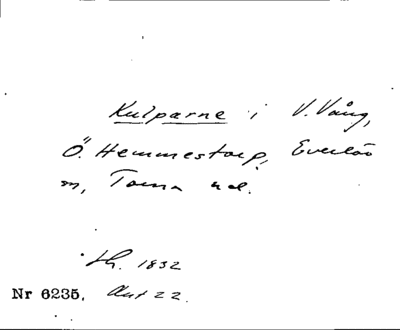 Kulparne i V. Vång,
Ö. Hemmestorp, Everlöv
m, Torna hd.
1832
Nr 6235.